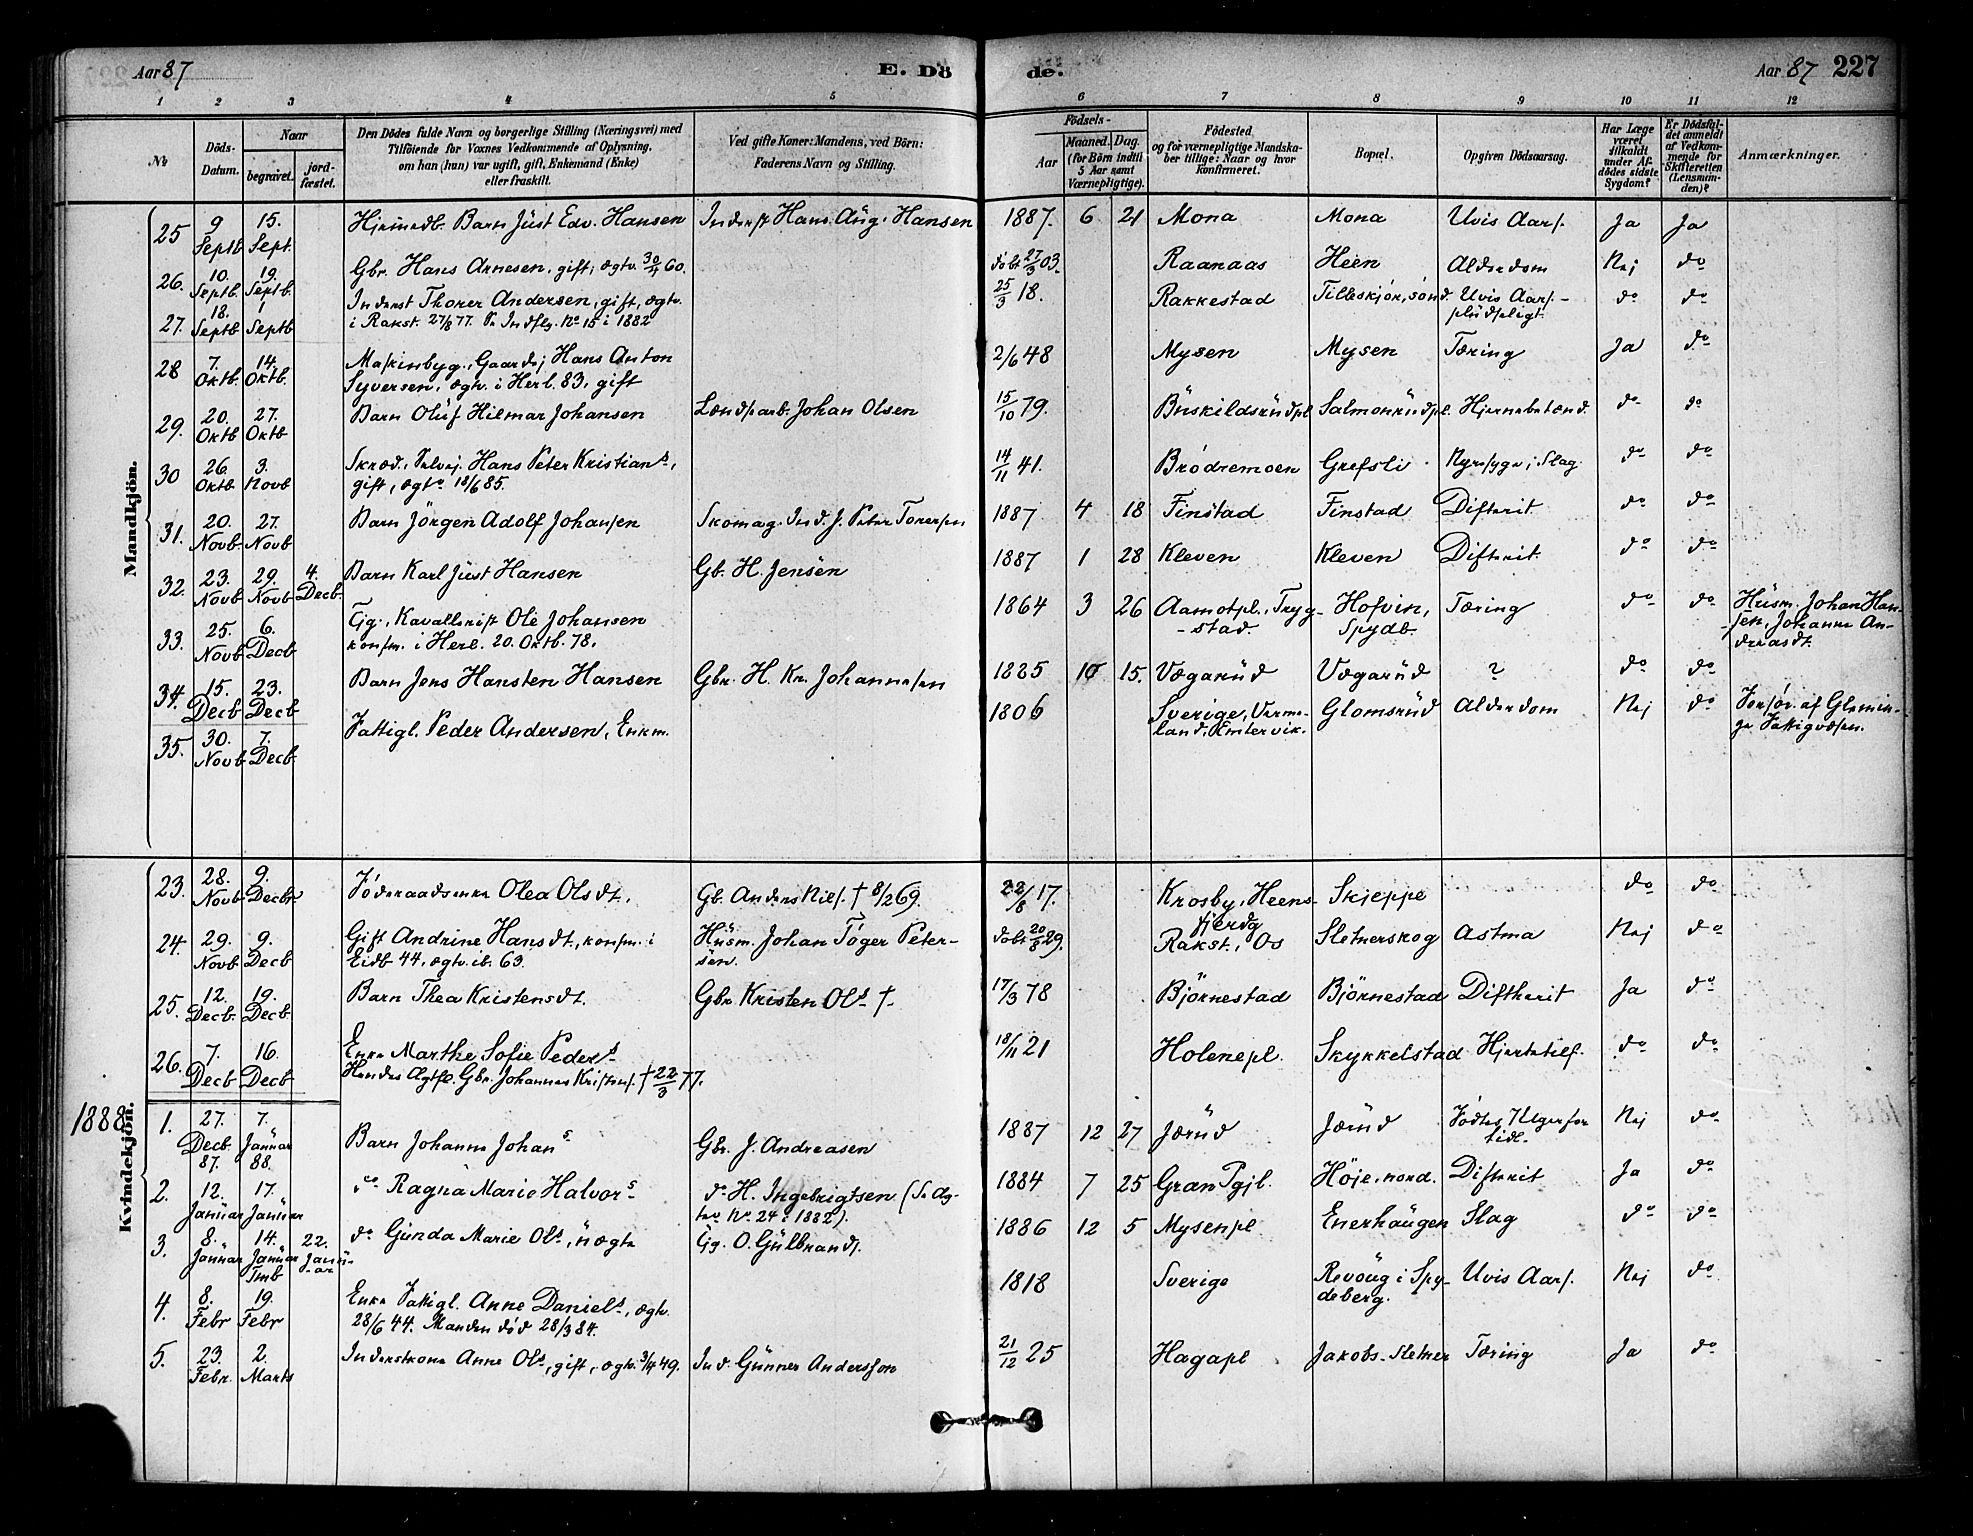 Aar 87
E. Dö
de.
Aar 87 227
1 2 3 4 5 6 7 8 9 10 11 12
No
Döds-Datum.
Naar
begravet.
jord-fæstet.
Den Dödes fulde Navn og borgerlige Stilling (Næringsvei) med
Tilföiende for Voxnes Vedkommende af Oplysning,
om han (hun) var ugift, gift, Enkemand (Enke)
eller fraskilt.
Ved gifte Koner: Mandens, ved Börn:
Faderens Navn og Stilling.
Födsels-
Aar
Maaned. Dag.
(for Börn indtil
5 Aar samt
Værnepligtige).
Födested
og for værnepligtige Mandska-
ber tillige: Naar og hvor
konfirmeret.
Bopæl.
Opgiven Dödsaarsag.
Har Læge
været
tilkaldt
under Af-
dödes sidste
Sygdom?
Er Dödsfal-
det anmeldt
af Vedkom-
mende for
Skifteretten
(Lensman-
den)?
Anmærkninger.
Mandkjön.
25 9 Septb. 15. Sept. Hjemmedb. Barn Just Edv. Hansen Inderst Hans Aug. Hansen 1887. 6 21 Mona Mona Uvis Aars. Ja Ja
26. 10. Septb. 19. Septb. Gbr. Hans Arnesen, gift, ægtv. 30/11 60. döbt 27/3 03. Raanaas Heen Alderdom Nej do
27. 18. Septb 1 Septb Inderst Thorer Andersen, gift, ægtv.
i Rakst. 27/8 77. Se Indflg. No 15 i 1882 25/3 18. Rakkestad Tilleskjör, sönd. Uvis Aars. -
pludseligt. do do
28 7. Oktb. 14. Oktb. Maskinbyg., Gaardej Hans Anton
Syversen, ægtv. i Herl. 83, gift 2/6 48 Mysen Mysen Tæring Ja do
29. 20. Oktb 27. Oktb Barn Oluf Hilmar Johansen Landsarb. Johan Olsen 15/10 79. Buskildsrudpl. Salmonrudpl. Hjernebetænd. do do
30 26. Oktb 3. Novb Skræd., Selvej. Hans Peter Kristians,
gift, ægtv 18/6 85. 14/11 41. Brödremoen Grefsli Nyresyge, Slag do do
31. 20. Novb 27. Novb Barn Jörgen Adolf Johansen Skomag. Ind. J. Peter Torersen 1887 4 18 Finstad Finstad Difterit do do
32. 23. Novb 29. Novb 4. Decb. Barn Karl Just Hansen Gb. H. Jensen 1887 1 28 Kleven Kleven Difterit. do do
33. 25. Novb 6. Decb Tjg., Kavallerist Ole Johansen
konfm. i Herl. 20. Oktb. 78. 1864 3 26 Aamotpl., Tryg-
-stad. Hofvin,
Spydb. Tæring do do Husm. Johan Han-
sen, Johanne An-
dreasdt.
34. 15. Decb 23. Decb Barn Jens Hansten Hansen Gbr. H. Kr. Johannesen 1885 10 15. Vægarud Vægarud ? do do
35. 30. Novb 7. Decb Fattigl. Peder Andersen, Enkm. 1806 Sverige, Verme-
land, Emtervik. Glomsrud Alderdom Nej do Forsör. af Glemin-
ge Fattigvæsen.
Kvindekjön.
23. 28. Novb 9. Decbr Föderaadsenke Olea Olsdt. Gb. Anders Niels. † 8/2 69. 22/8 17. Krosby, Heens-
fjerdg Skjeppe do do
24. 29. Novb 9. Decb Gift Andrine Hansdt, konfm. i
Eidb 44, ægtv. ib. 63. Husm. Johan Töger Peter-
sen. döbt 20/8 29. Rakst., Os Sletnerskog Astma Nej do
25. 12. Decb. 19. Decb. Barn Thea Kristensdt. Gbr Kristen Ols †. 17/3 78 Björnestad Björnestad Diftherit Ja do
26. 7. Decb 16. Decb Enke Marthe Sofie Peders
Hendes Ægtf. Gbr. Johannes Kristens. † 22/3 77. 18/11 21 Holenepl. Skykkelstad Hjertetilf. do do
1888
1. 27. Decb. 87. 7. Januar 88. Barn Johanne Johans Gbr. J. Andreasen 1887 12 27 Jærud Jærud Födtes Uger for
tidl. Nej do
2. 12. Januar 17. Januar do Ragna Marie Halvors do H. Ingebrigtsen (Se Æg-
tev. No. 24 i 1882). 1884 7 25 Gran Pgjl. Höje, nord. Difterit Ja do
3. 8. Januar 14. Januar Tmb 22. Janu-
ar do Gunda Marie Ols, uægte Gg. O. Gulbrands. 1886 12 5 Mysenpl Enerhaugen Slag do do
4. 8. Febr 19. Febr Enke Fattigl. Anne Daniels, ægtv.
28/6 44. Manden död 28/3 84. 1818 Sverige Revöug i Spy-
deberg. Uvis Aars. Nej do
5. 23. Febr. 2. Marts Inderstkone Anne Ols, gift, ægtv. 3/4 49. Ind. Gunner Andersson 21/12 25 Hagapl Jakobs-Sletner Tæring Ja do